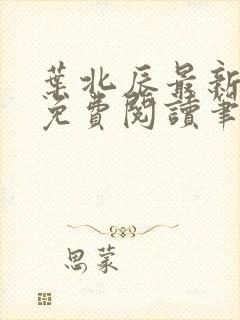 葉北辰最新
免費閱讀筆
思蒙